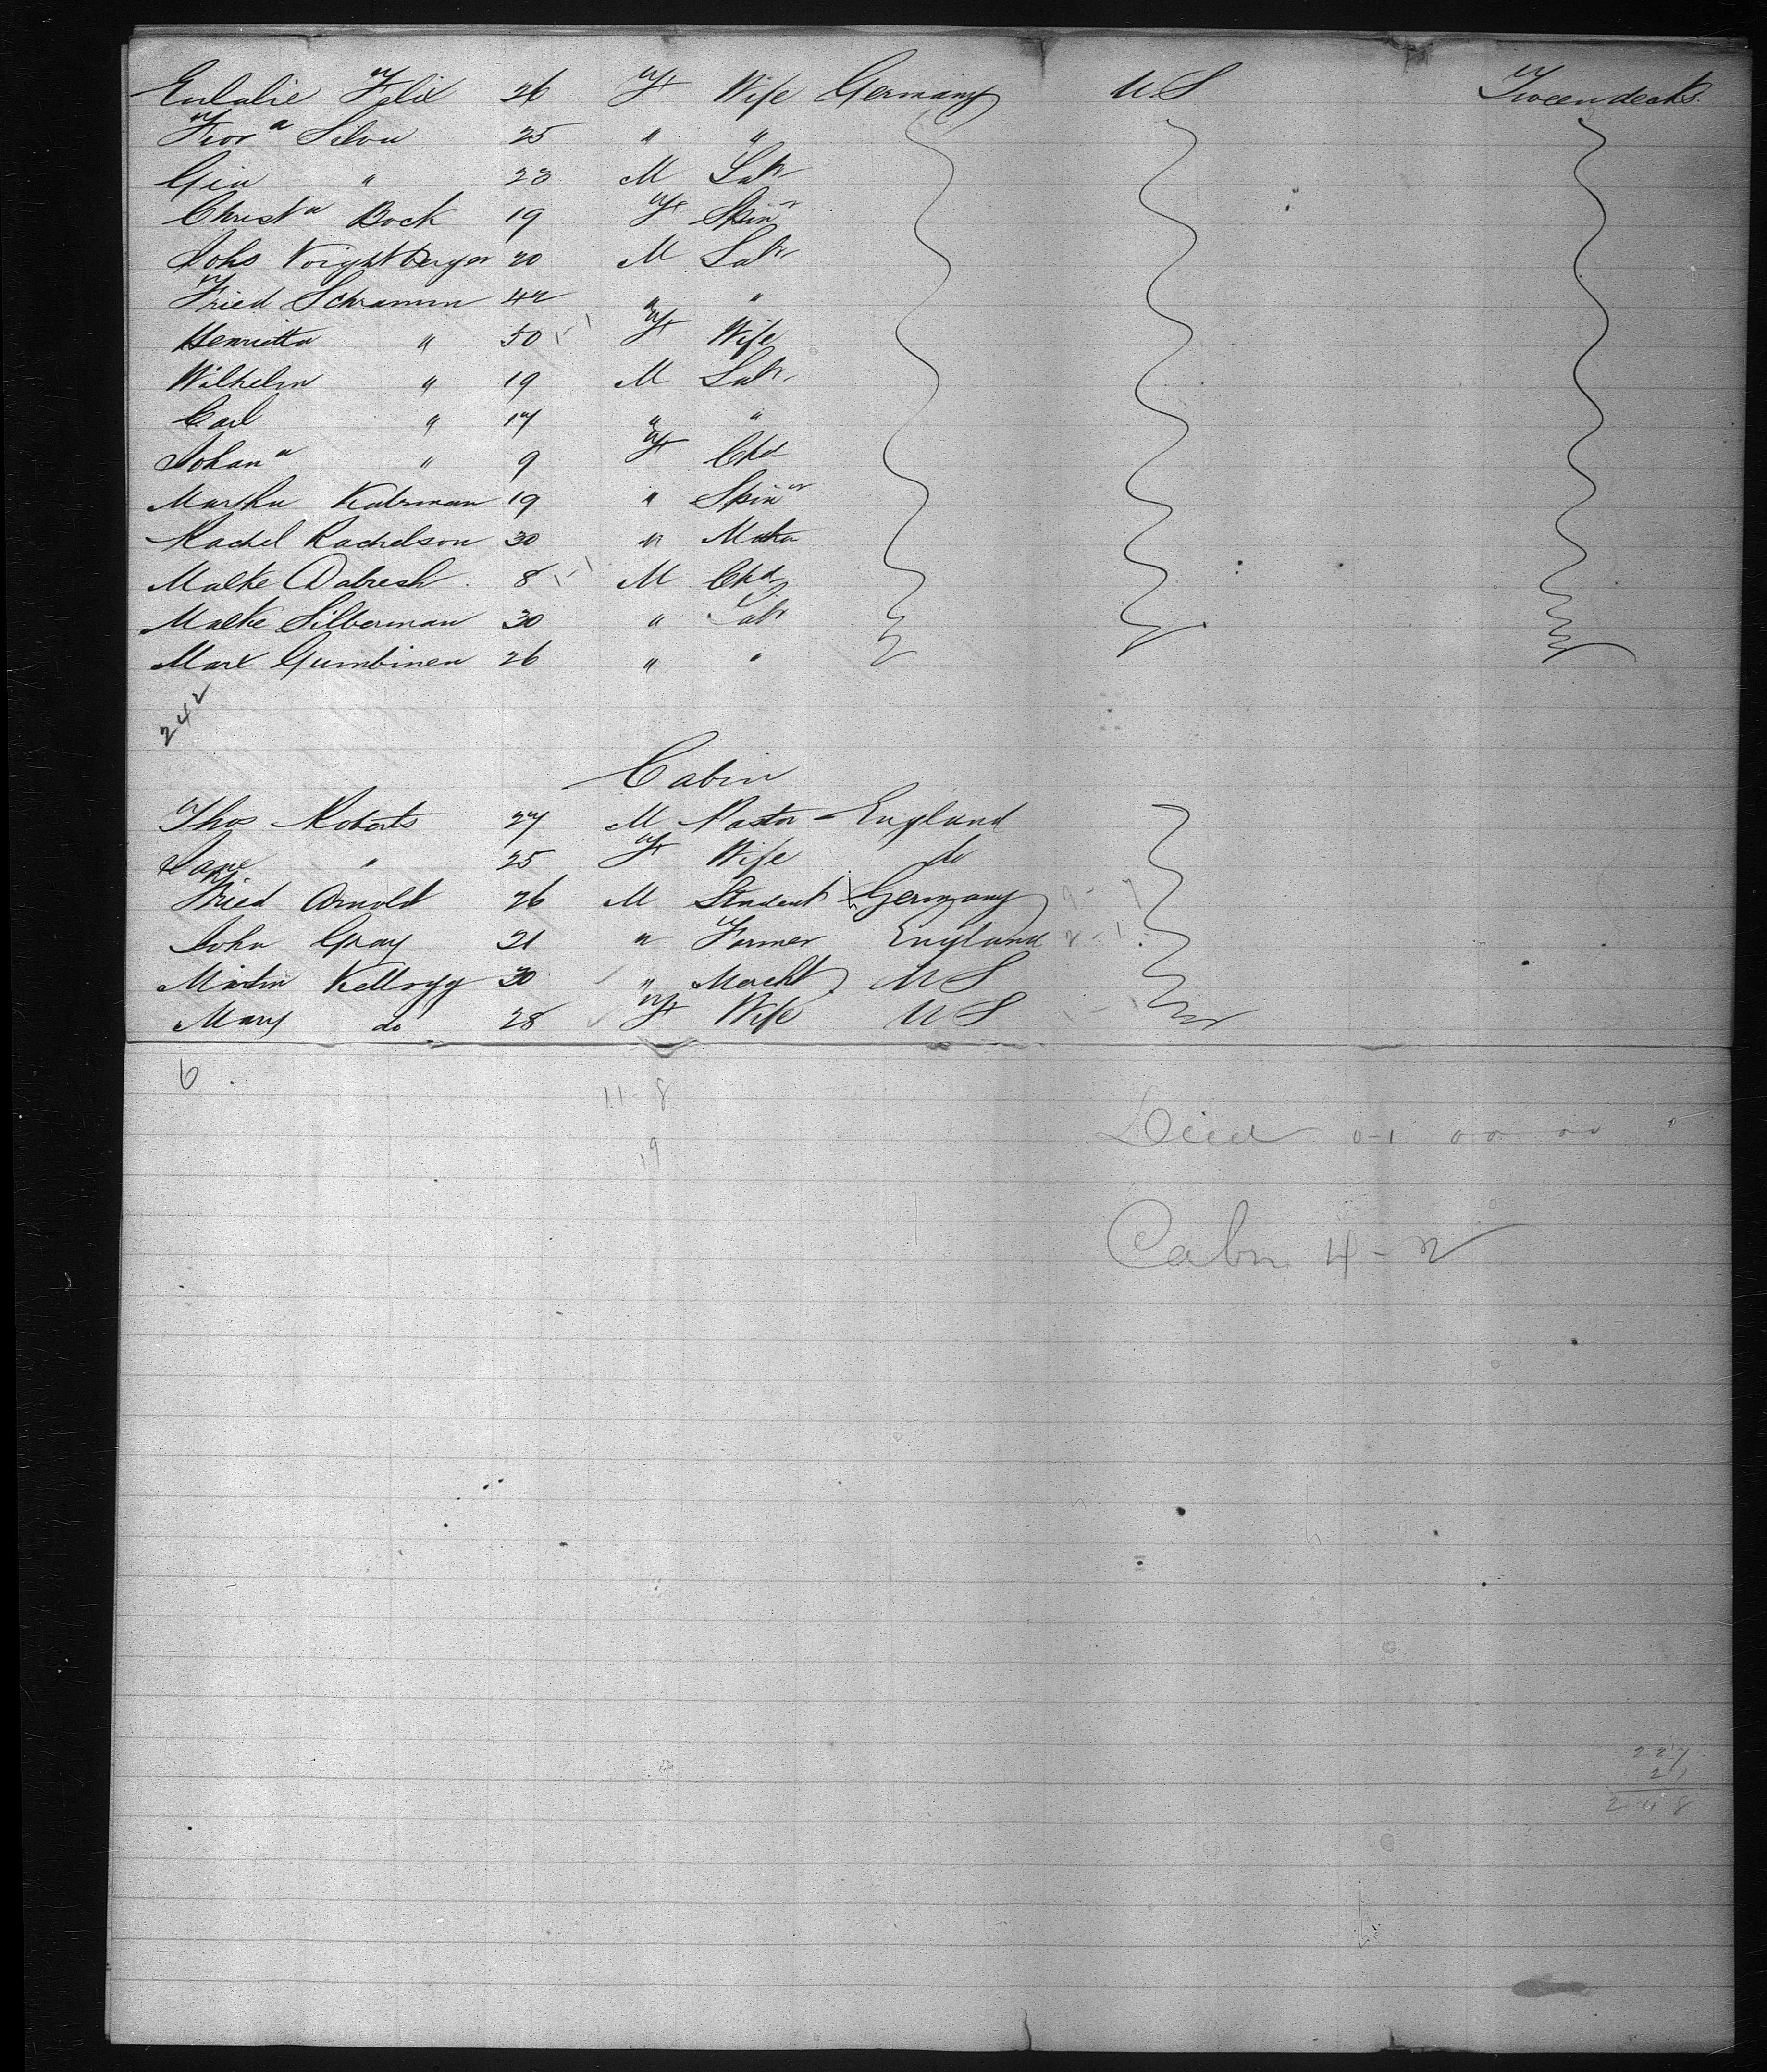 Eulalie Felix 26 F Wife Germany U.S Tween decks.
Fior a Silva 25 " "
Gia " 23 M Labr
Christ a Bock 19 F Spinr
Johs Voightberger 20 M Labr
Fried Schramm 42 " "
Henrietta " 50 F Wife
Wilhelm " 19 M Labr
Carl " 17 " "
Johan a " 9 F Chd
Martha Katzman 19 " Spinr
Rachel Rachelson 30 "
Malke Dabresh 8 M Chd
Malke Silberman 30 " Labr
Marx Gumbinen 26 " "
242
Cabin
Thos Roberts 27 M Pastor England
Jane " 25 F Wife do
Fried Arnold 26 M Student Germany
John Gray 21 " Farmer England
Martin Kellogg 30 " Marcht U S
Mary do 28 F Wife U S
6
11-8
19
Died 0-1 00 00
Cabn 4-2
227
21
248